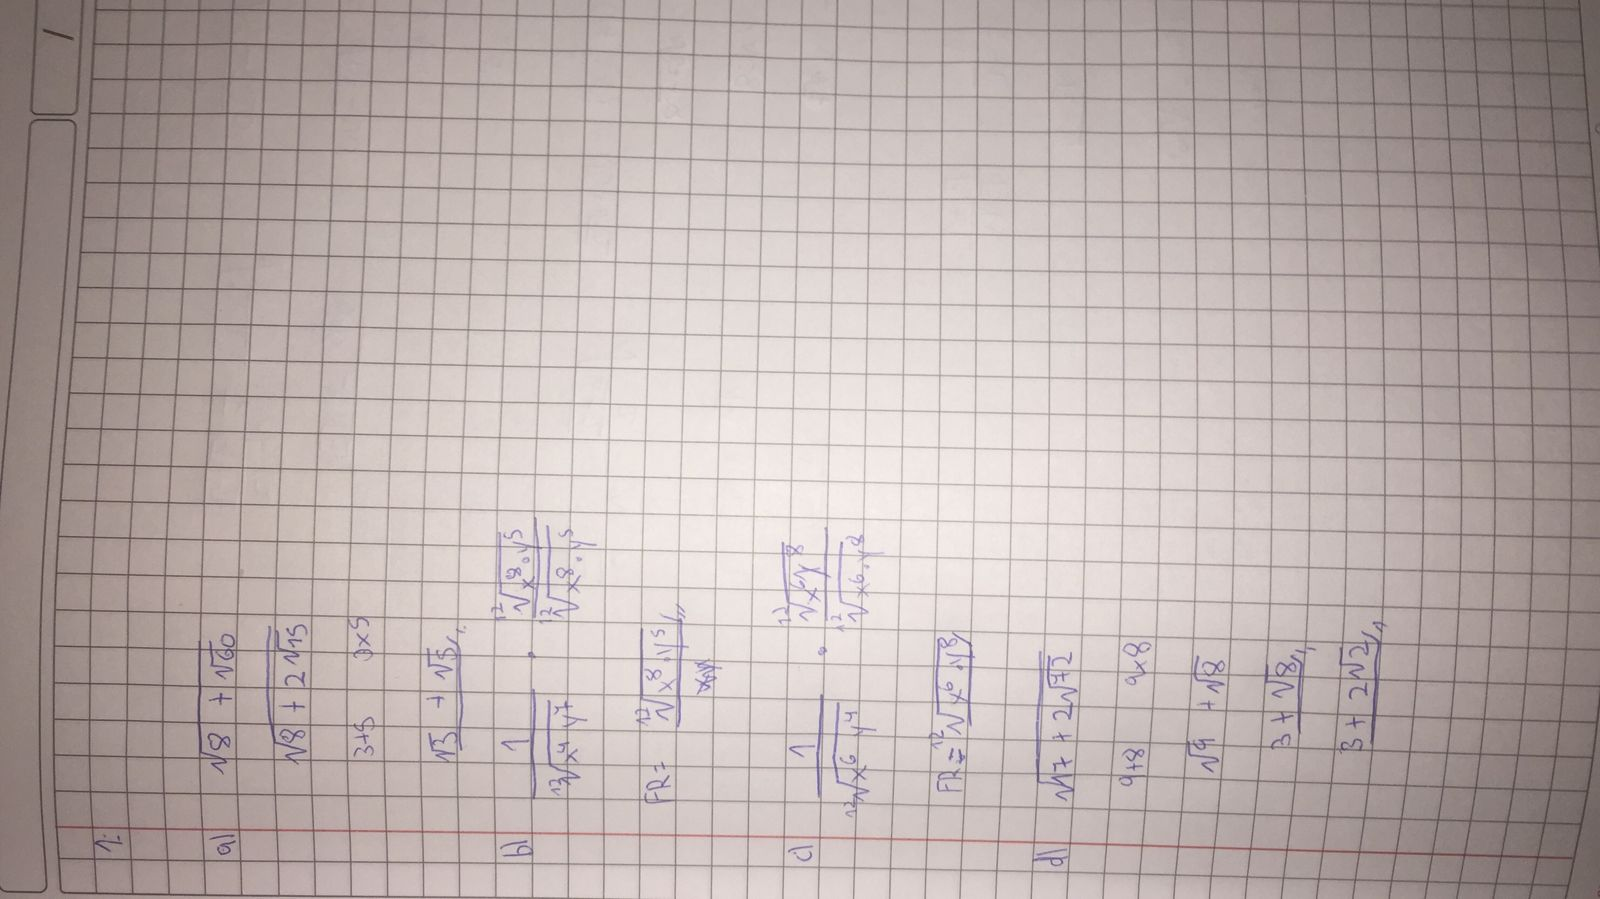 1:
a) √8 + √60
√8 + 2√15
3+5 3×5
√3 + √5
b) 1 / ¹²√x⁴ y⁷ · ¹²√x⁸·y⁵ / ¹²√x⁸·y⁵
FR = ¹²√x⁸·y⁵
c) 1 / ¹²√x⁶ y⁴ · ¹²√x⁶y⁸ / ¹²√x⁶·y⁸
FR = ¹²√x⁶·y⁸
d) √17 + 2√72
9+8 9×8
√9 + √8
3 + √8
3 + 2√2